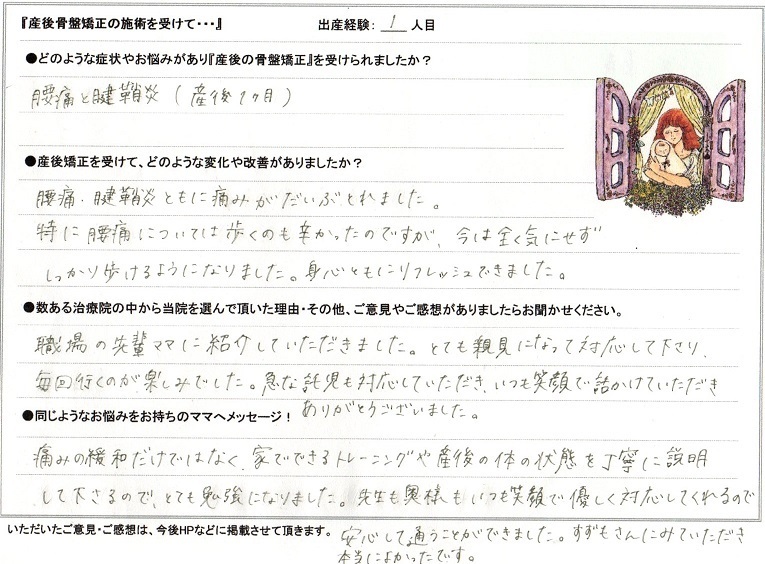 『産後骨盤矯正の施術を受けて・・・』 出産経験： 1 人目
●どのような症状やお悩みがあり『産後の骨盤矯正』を受けられましたか？
腰痛と腱鞘炎（産後1ヶ月）
●産後矯正を受けて、どのような変化や改善がありましたか？
腰痛・腱鞘炎ともに痛みがだいぶとれました。
特に腰痛については歩くのも辛かったのですが、今は全く気にせず
しっかり歩けるようになりました。身心ともにリフレッシュできました。
●数ある治療院の中から当院を選んで頂いた理由・その他、ご意見やご感想がありましたらお聞かせください。
職場の先輩ママに紹介していただきました。とても親見になって対応して下さり、
毎回行くのが楽しみでした。急な託児も対応していただき、いつも笑顔で話かけていただき
ありがとうございました。
●同じようなお悩みをお持ちのママへメッセージ！
痛みの緩和だけではなく、家でできるトレーニングや産後の体の状態を丁寧に説明
して下さるので、とても勉強になりました。先生も奥様もいつも笑顔で優しく対応してくれるので
いただいたご意見・ご感想は、今後HPなどに掲載させて頂きます。
安心して通うことができました。すずもさんにみていただき
本当によかったです。